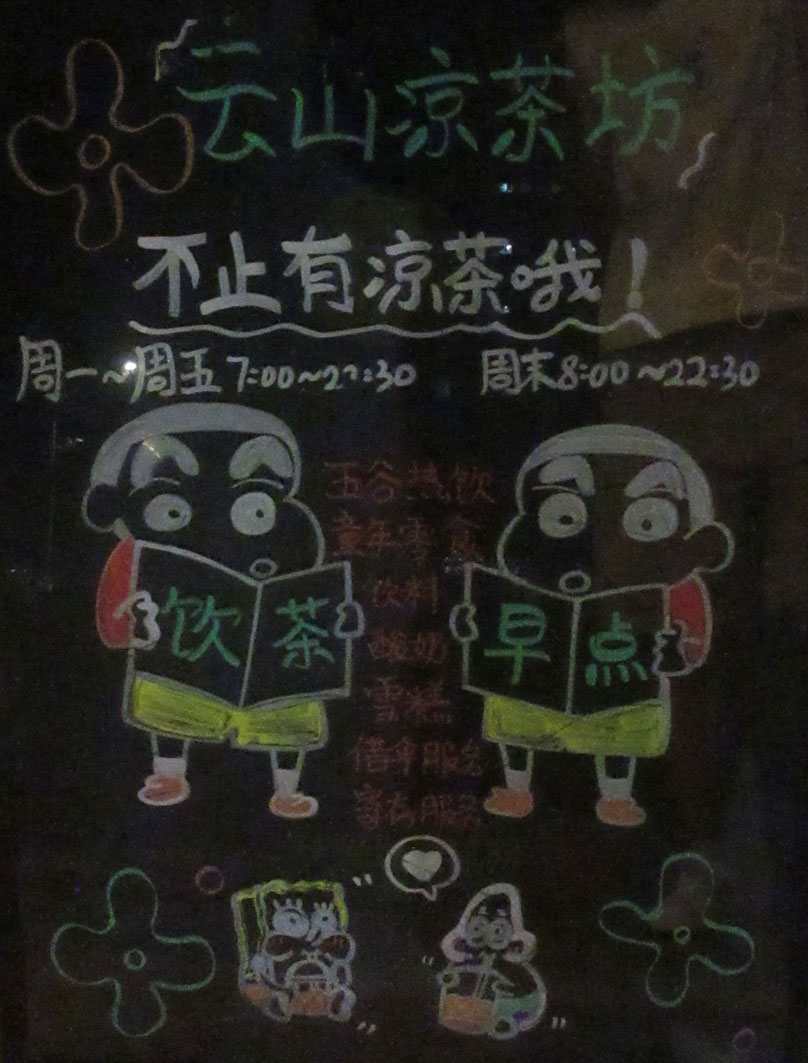 云山凉茶坊
不止有凉茶哦！
周一~周五 7:00~22:30 周末8:00~22:30
五谷热饮
童年零食
饮料
酸奶
雪糕
借伞服务
寄存服务
饮茶
早点